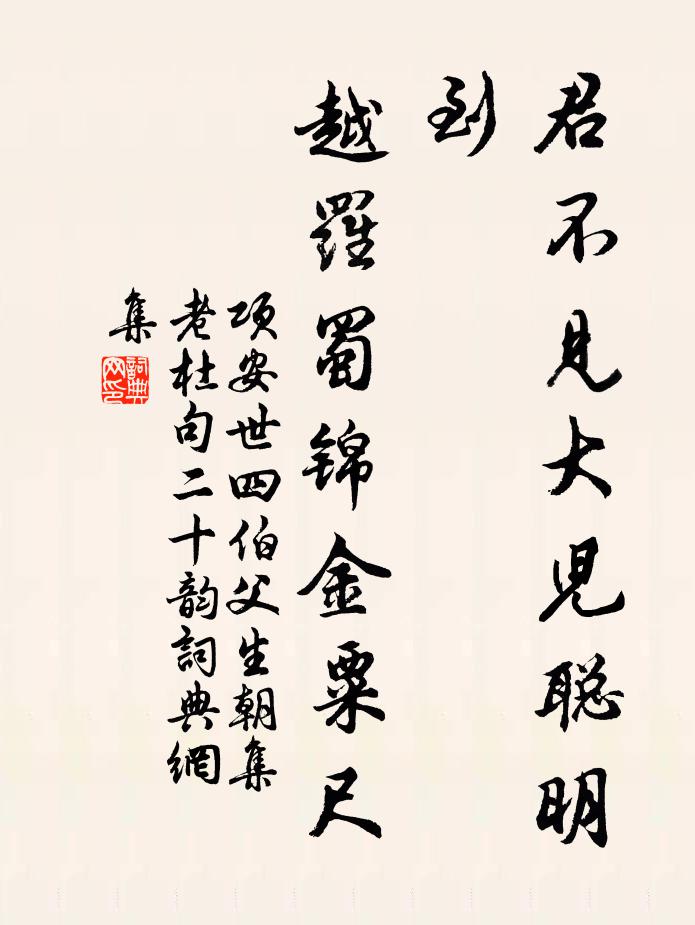 君不見大兒聪明
到
越羅蜀锦金粟尺
項安世四伯父生朝集
老杜句二十韵詞典網
集
詞典
网印